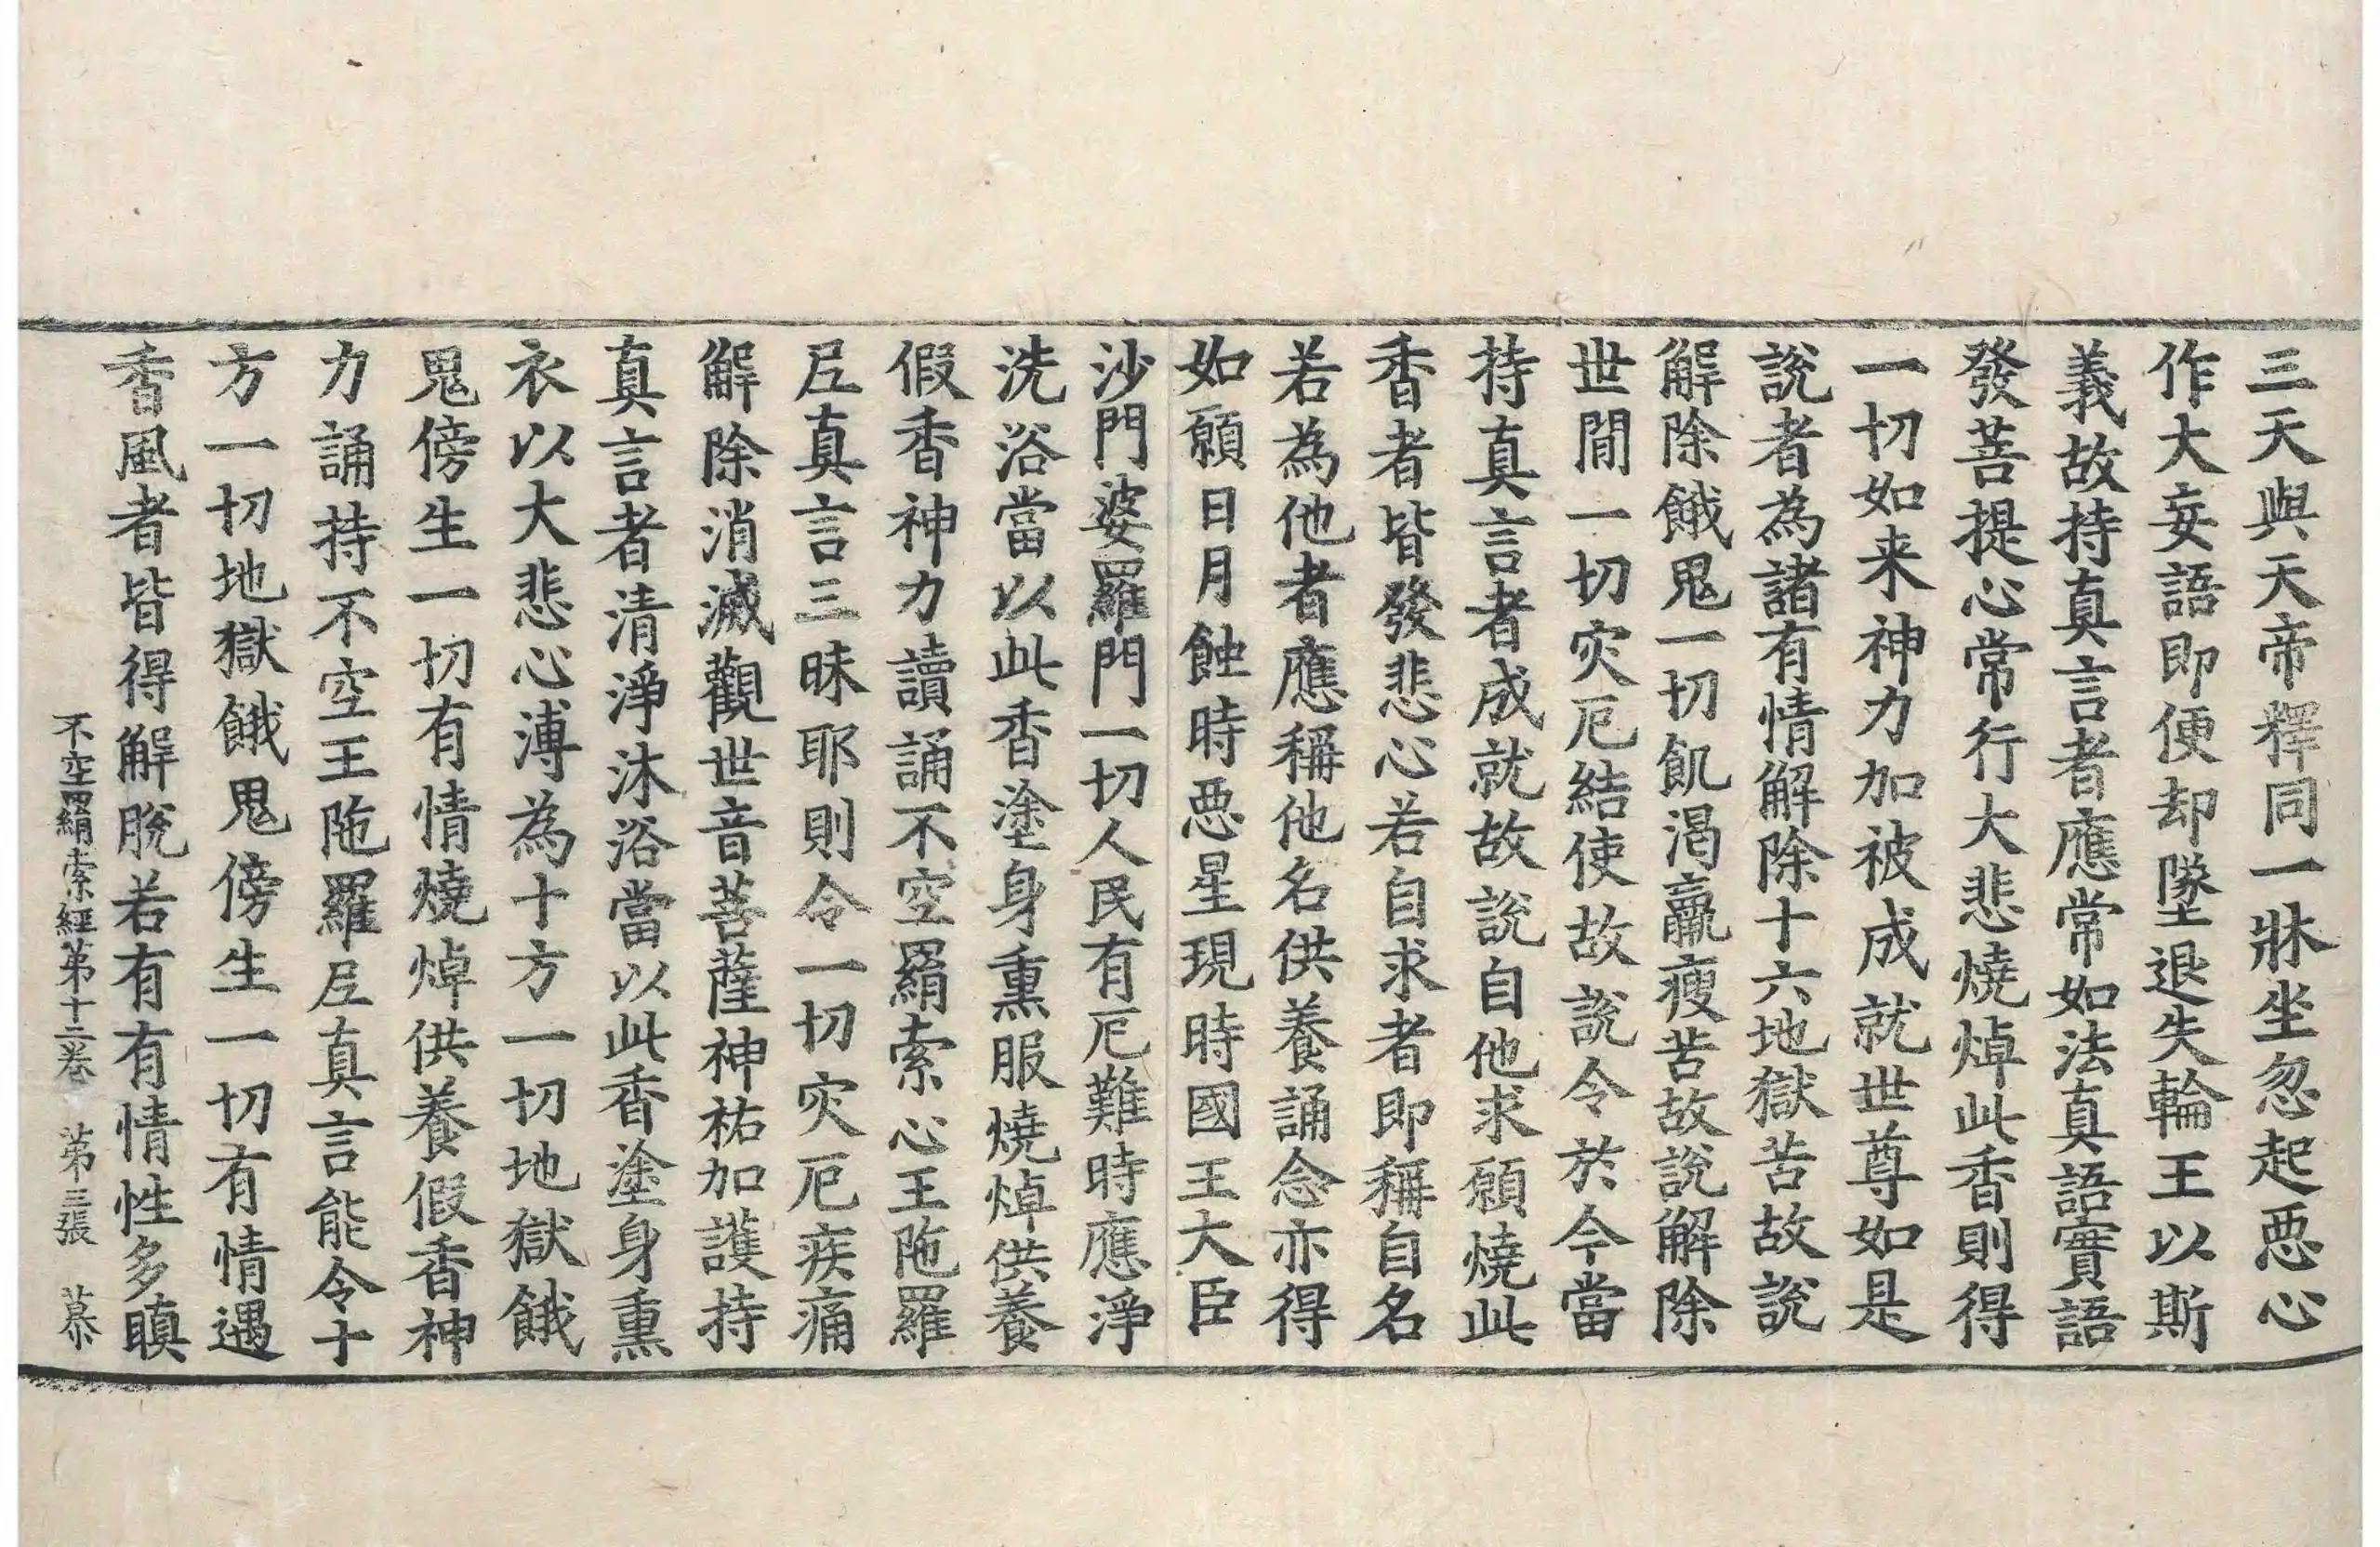 三天與天帝釋同一牀坐忽起惡心
作大妄語即便却墜退失輪王以斯
義故持真言者應常如法真語實語
發菩提心常行大悲燒焯此香則得
一切如来神力加被成就世尊如是
說者為諸有情解除十六地獄苦故說
解除餓鬼一切飢渴羸瘦苦故說解除
世間一切灾厄結使故說令於今當
持真言者成就故說自他求願燒此
香者皆發悲心若自求者即稱自名
若為他者應稱他名供養誦念亦得
如願日月蝕時惡星現時國王大臣
沙門婆羅門一切人民有厄難時應淨
洗浴當以此香塗身熏服燒焯供養
假香神力讀誦不空羂索心王陁羅
尼真言三昧耶則令一切灾厄疾痛
解除消滅觀世音菩薩神祐加護持
真言者清淨沐浴當以此香塗身熏
衣以大悲心溥為十方一切地獄餓
鬼傍生一切有情燒焯供養假香神
力誦持不空王陁羅尼真言能令十
方一切地獄餓鬼傍生一切有情遇
香風者皆得解脫若有有情性多瞋
不空羂索經第十二卷 第三張 慕